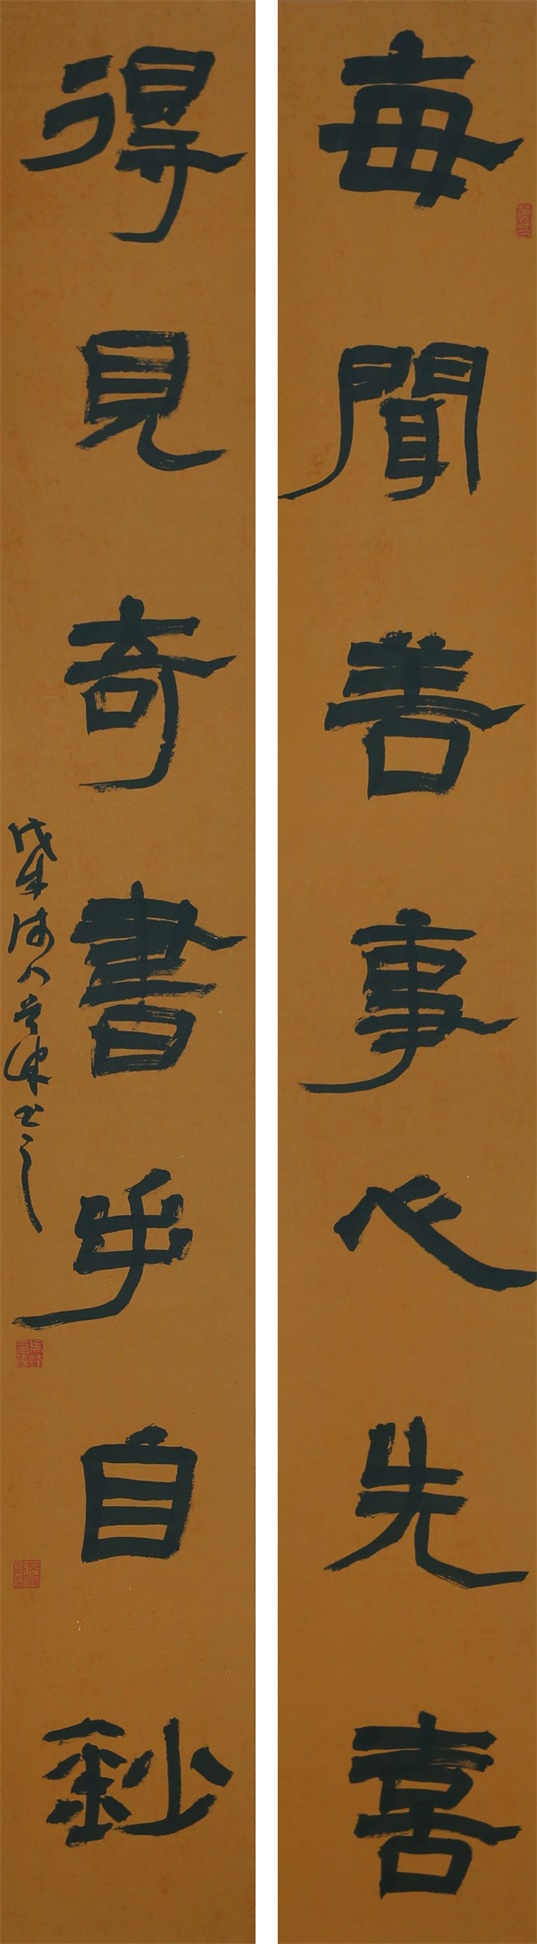 每聞善事心先喜
得見奇書手自鈔